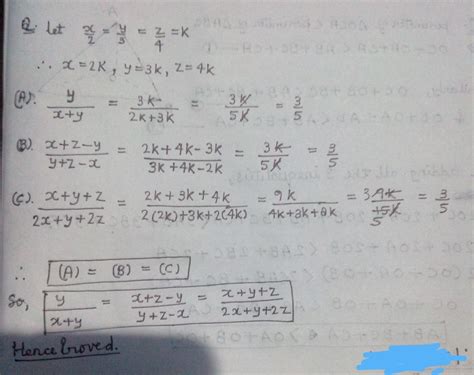 Q. Let x/2 = y/3 = z/4 = K
∴ x = 2K, y = 3k, z = 4k
(A). y/(x+y) = 3k/(2k+3k) = 3k/5k = 3/5
(B). (x+z-y)/(y+z-x) = (2k+4k-3k)/(3k+4k-2k) = 3k/5k = 3/5
(C). (x+y+z)/(2x+y+2z) = (2k+3k+4k)/(2(2k)+3k+2(4k)) = 9k/(4k+3k+8k) = 3 9k/15k 5 = 3/5
∴ (A) = (B) = (C)
So, y/(x+y) = (x+z-y)/(y+z-x) = (x+y+z)/(2x+y+2z)
Hence Proved.